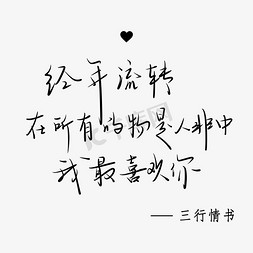 经年流转
在所有的物是人非中
我最喜欢你
——三行情书